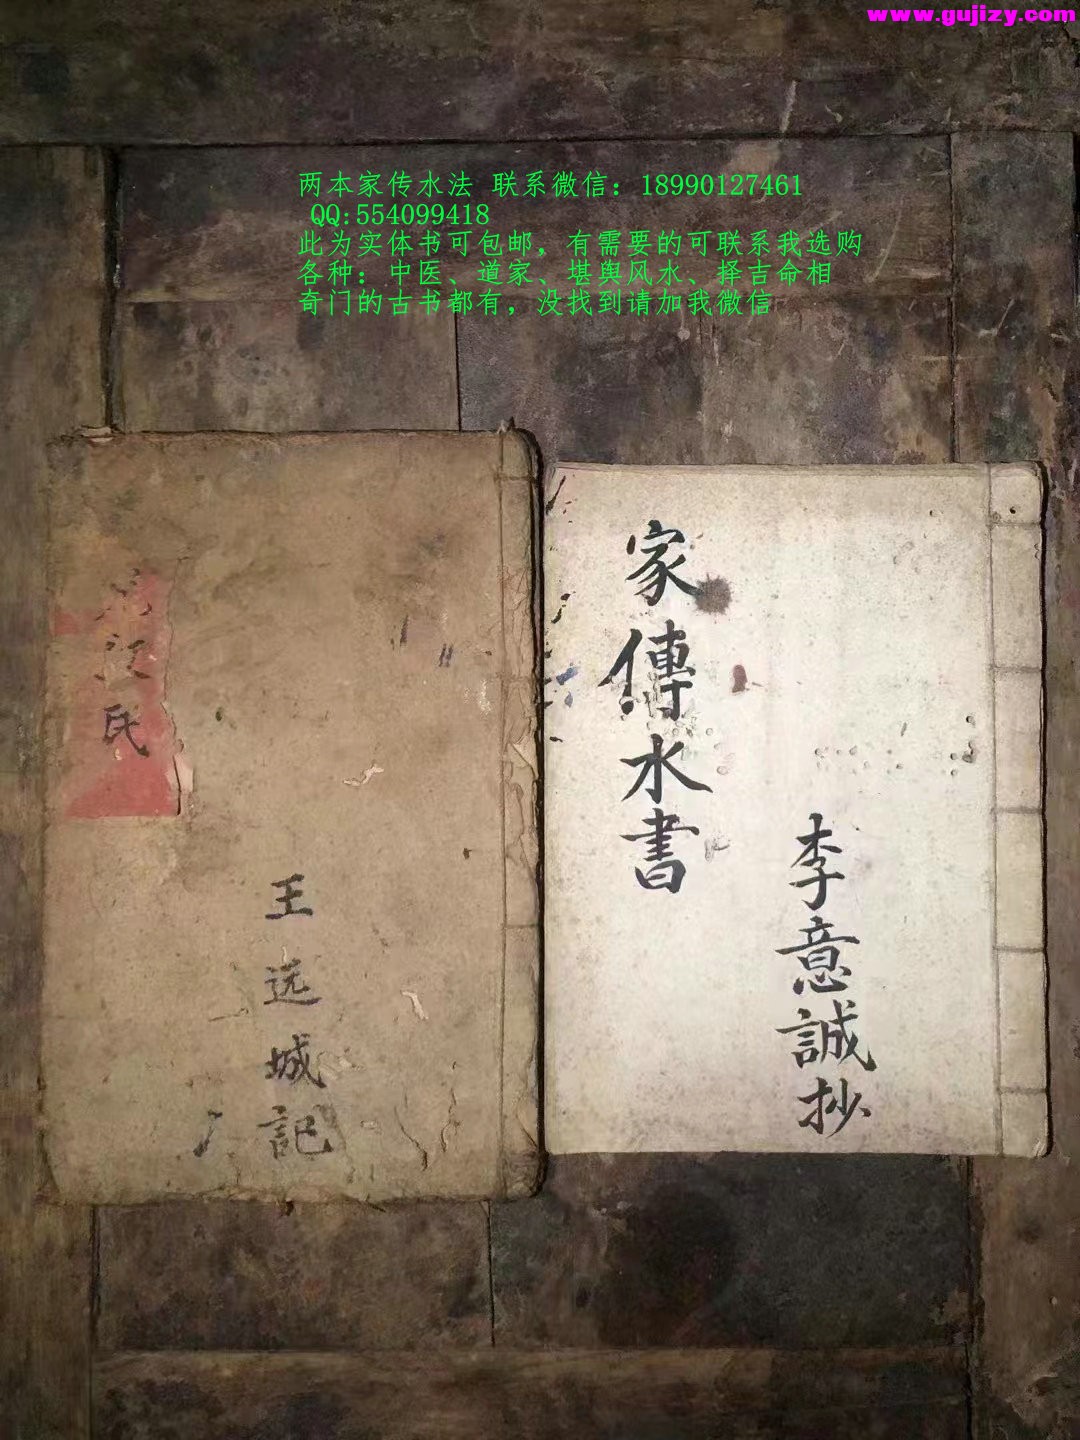 www.gujizy.com
两本家传水法 联系微信：18990127461
QQ:554099418
此为实体书可包邮，有需要的可联系我选购
各种：中医、道家、堪舆风水、择吉命相
奇门的古书都有，没找到请加我微信
家傳水書
李意誠抄
氏
王远城記